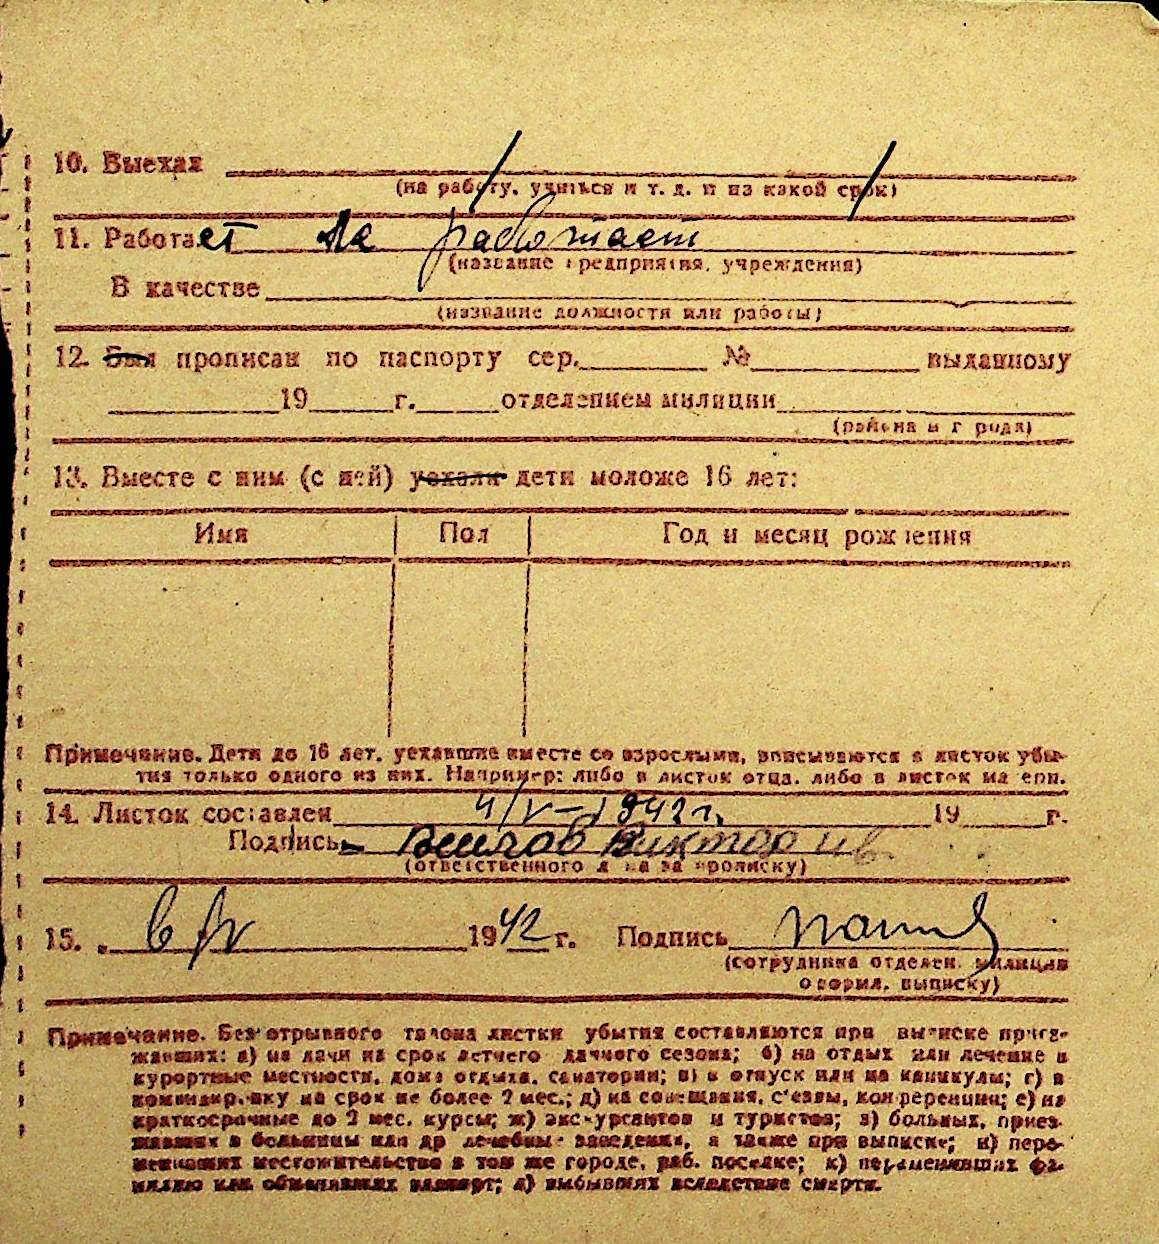 10. Выехал
(на работу, учиться и т. д. и на какой срок)
11. Работает Не работает
(название предприятия, учреждения)
В качестве
(название должности или работы)
12. Был прописан по паспорту сер. № выданному
19 г. отделением милиции
(района и города)
13. Вместе с ним (с ней) уехали дети моложе 16 лет:
Имя Пол Год и месяц рождения
Примечание. Дети до 16 лет, уехавшие вместе со взрослыми, вписываются в листок убы-
тия только одного из них. Например: либо в листок отца, либо в листок матери.
14. Листок составлен 4/V-1942 г. 19 г.
Подпись
(ответственного лица за прописку)
15. 1942 г. Подпись
(сотрудника отделен. милиции
оформл. выписку)
Примечание. Без отрывного талона листки убытия составляются при выписке приез-
жавших: а) на дачи на срок летнего дачного сезона; б) на отдых или лечение в
курортные местности, дома отдыха, санатории; в) в отпуск или на каникулы; г) в
командировку на срок не более 2 мес.; д) на совещания, с'езды, конференции; е) на
краткосрочные до 2 мес. курсы; ж) экскурсантов и туристов; з) больных, приез-
жавших в больницы или др лечебные заведения, а также при выписке; и) пере-
менивших местожительство в том же городе, раб. поселке; к) переменивших фа-
милию или обменявших паспорт; л) выбывших вследствие смерти.